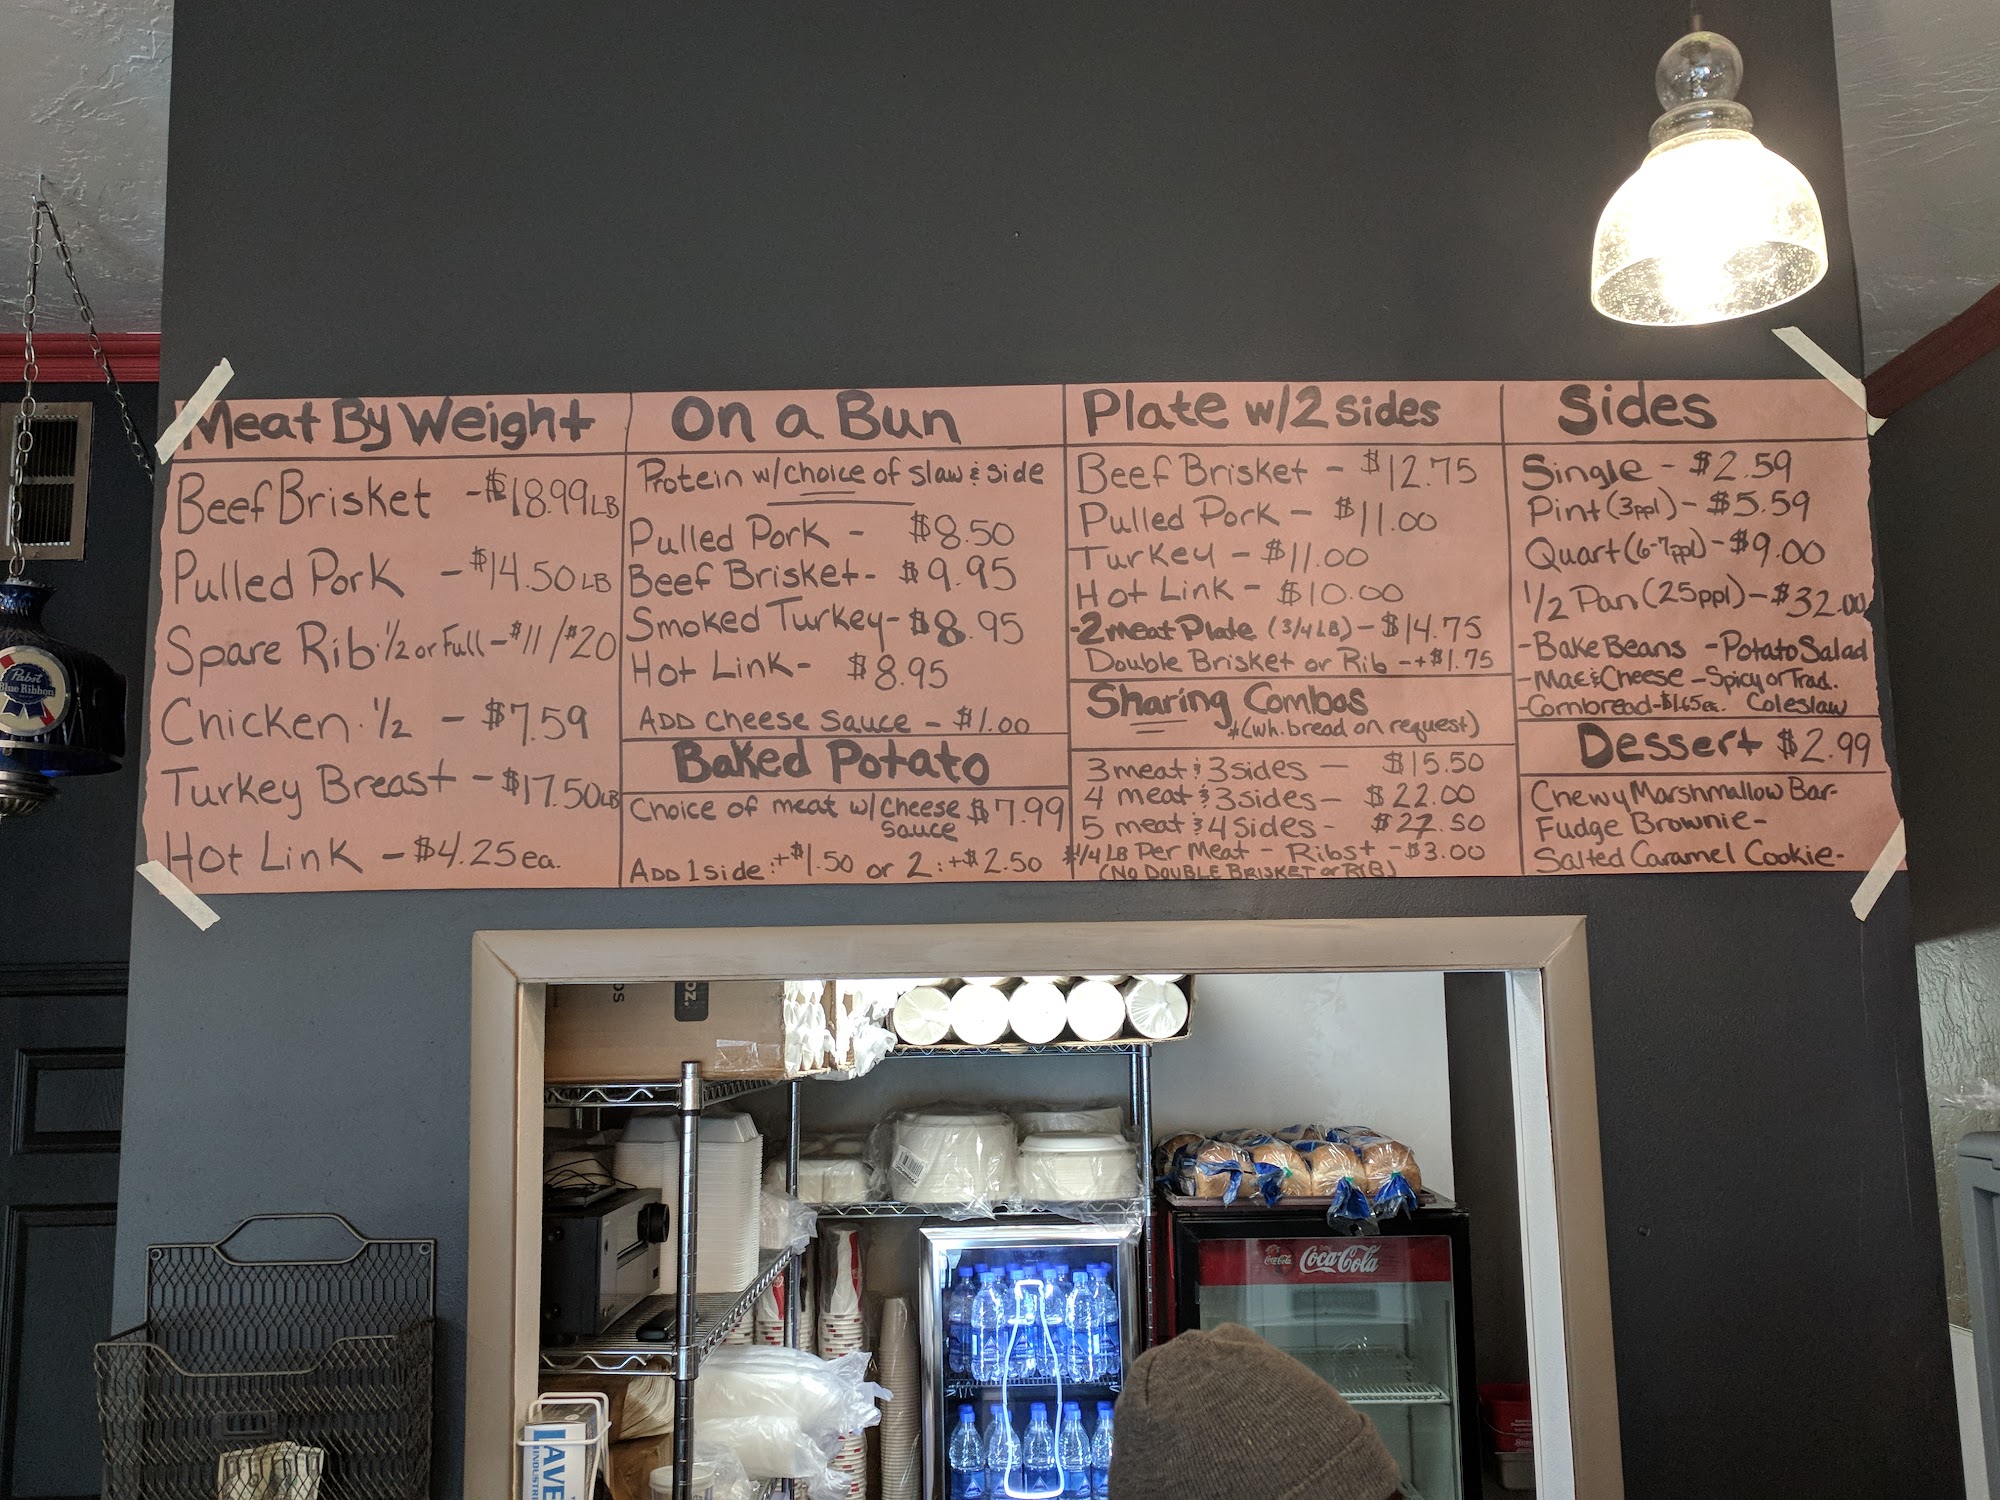 Meat By Weight
Beef Brisket - $18.99 LB
Pulled Pork - $14.50 LB
Spare Rib · 1/2 or Full - $11 / $20
Chicken · 1/2 - $7.59
Turkey Breast - $17.50 LB
Hot Link - $4.25 ea.
On a Bun
Protein w/choice of slaw & side
Pulled Pork - $8.50
Beef Brisket - $9.95
Smoked Turkey - $8.95
Hot Link - $8.95
ADD Cheese Sauce - $1.00
Baked Potato
Choice of meat w/ Cheese $7.99
Sauce
ADD 1 side: +$1.50 or 2: +$2.50
Plate w/2 sides
Beef Brisket - $12.75
Pulled Pork - $11.00
Turkey - $11.00
Hot Link - $10.00
-2 meat Plate (3/4 LB) - $14.75
Double Brisket or Rib - +$1.75
Sharing Combos
*(wh. bread on request)
3 meat & 3 sides - $15.50
4 meat & 3 sides - $22.00
5 meat & 4 sides - $27.50
*1/4 LB Per Meat - Ribs + - $3.00
(NO DOUBLE BRISKET or RIB)
Sides
Single - $2.59
Pint (3ppl) - $5.59
Quart (6-7ppl) - $9.00
1/2 Pan (25ppl) - $32.00
-Bake Beans -Potato Salad
-Mac & Cheese -Spicy or Trad.
-Cornbread - $1.65 ea. Coleslaw
Dessert $2.99
Chewy Marshmallow Bar-
Fudge Brownie-
Salted Caramel Cookie-
Pabst
Blue Ribbon
OZ.
Coca-Cola
Coca-Cola